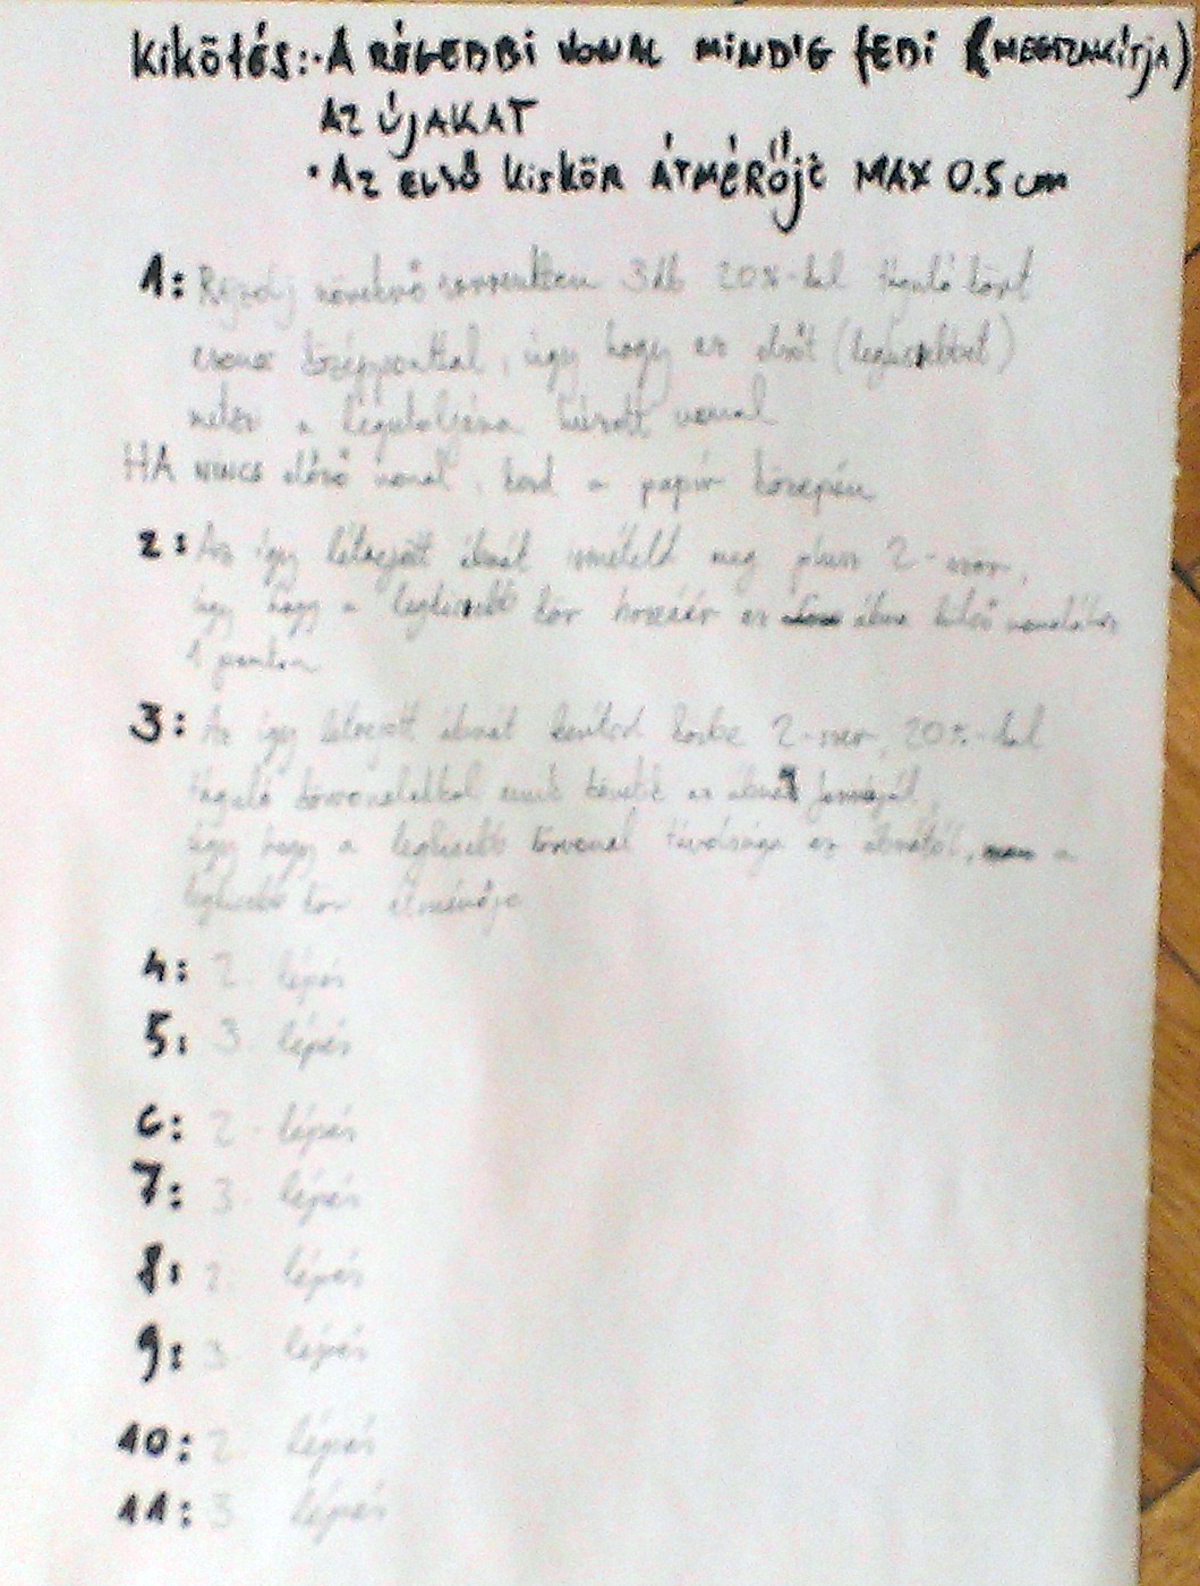 Kikötés: · A RÉGEBBI VONAL MINDIG FEDI (MEGSZAKÍTJA)
AZ ÚJAKAT
· AZ ELSŐ KISKÖR ÁTMÉRŐJE MAX 0.5 cm
1: Rajzolj növekvő sorrendben 3db 20%-kal táguló kört
azonos középponttal, úgy hogy az elsőt (legkisebbet)
a legutoljára húzott vonal
HA NINCS előző vonal, kezd a papír közepén
2: Az így létrejött ábrát ismételd meg plusz 2-szer,
úgy hogy a legkisebb kör hozzáér az ábra külső vonalához
1 ponton
3: Az így létrejött ábrát kerítsd körbe 2-szer, 20%-kal
táguló körvonalakkal amik követik az ábra formáját,
úgy hogy a legkisebb körvonal távolsága az ábrától, a
legkisebb kör átmérője
4: 2. lépés
5: 3. lépés
6: 2. lépés
7: 3. lépés
8: 2. lépés
9: 3. lépés
10: 2. lépés
11: 3. lépés